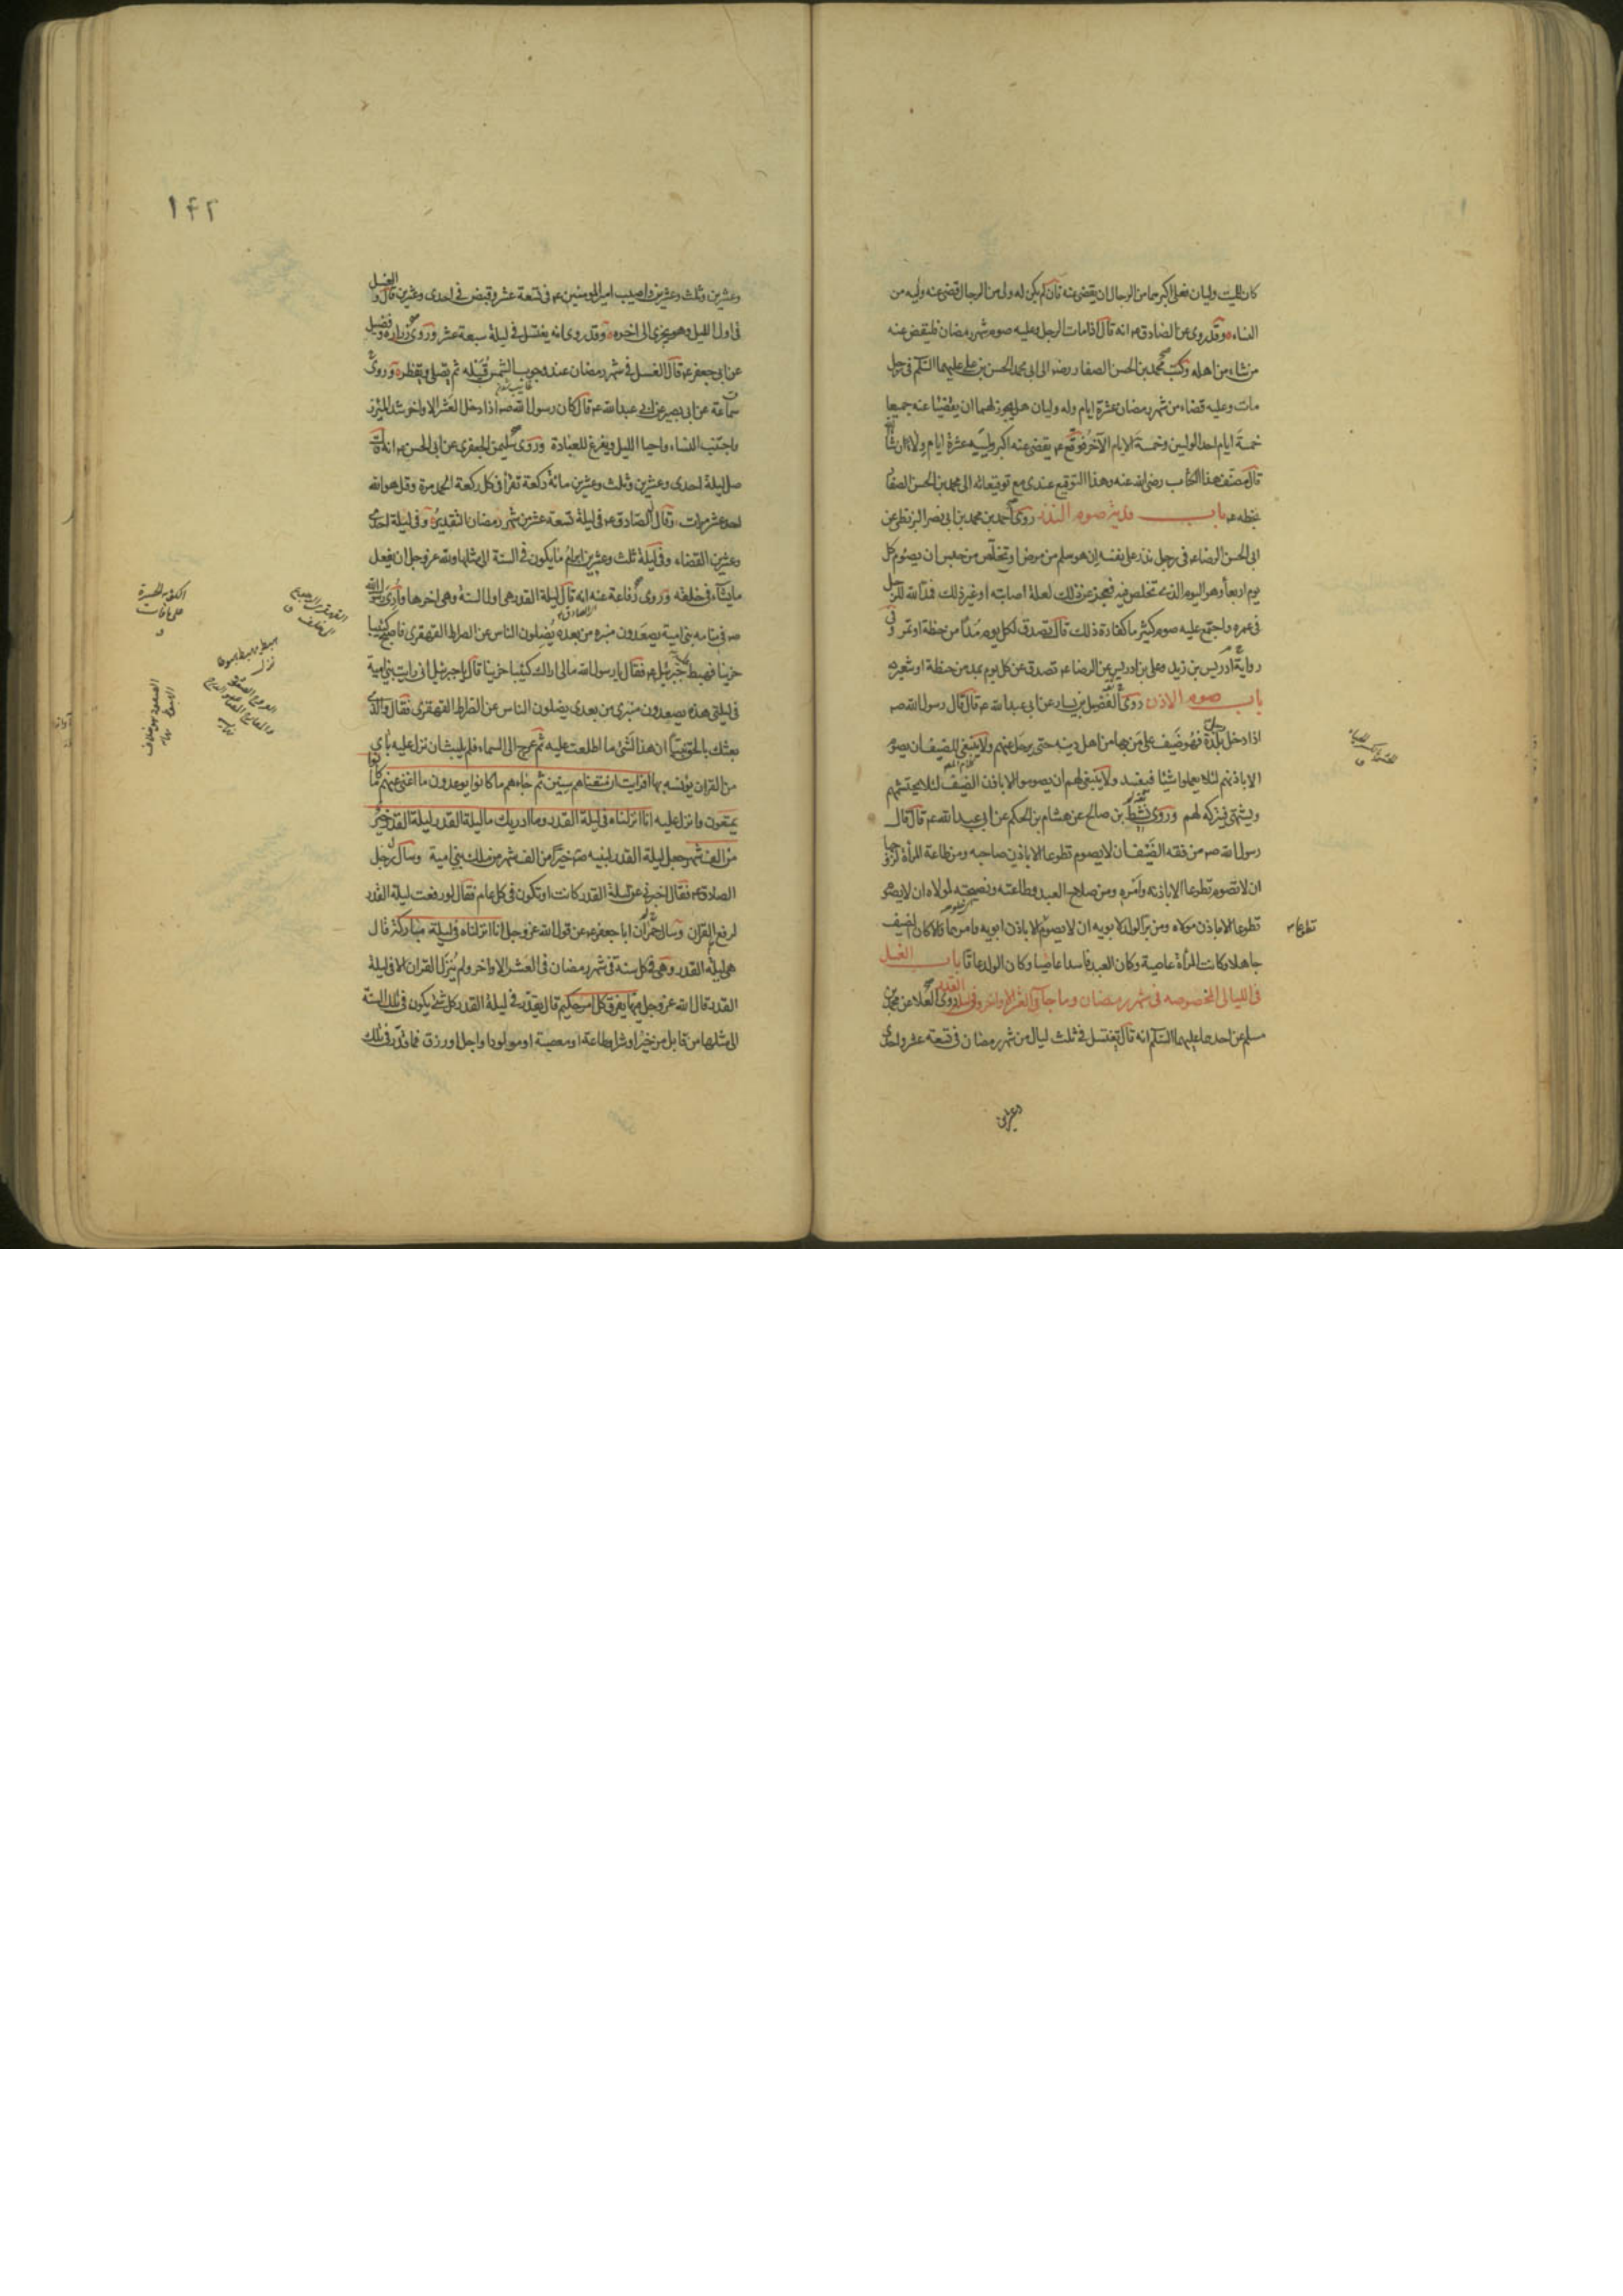 كان للميت وليان فعلى اكبرهما من الرجال ان يقضى عنه فان لم يكن له ولى من الرجال قضى عنه وليه من
النساء وقد روى عن الصادق ع انه قال اذا مات الرجل وعليه صوم شهر رمضان فليقض عنه
من شاء من اهله وكتب محمد بن الحسن الصفار رضه الى ابى محمد الحسن بن على عليهما السلم فى رجل
مات وعليه قضاء من شهر رمضان عشرة ايام وله وليان هل يجوز لهما ان يقضيا عنه جميعا
خمسة ايام احد الوليين وخمسة الايام الآخر فوقع ع يقضى عنه اكبر ولييه عشرة ايام ولاء ان شاء الله
قال مصنف هذا الكتاب رضى الله عنه وهذا التوقيع عندى مع توقيعاته الى محمد بن الحسن الصفار
بخطه ع باب فدية صوم النذر روى احمد بن محمد بن ابى نصر البزنطى عن
ابى الحسن الرضا ع فى رجل نذر على نفسه ان هو سلم من مرض او تخلص من حبس ان يصوم كل
يوم اربعاء وهو اليوم الذى تخلص فيه فعجز عن ذلك لعلة اصابته او غير ذلك فمد الله للرجل
فى عمره واجتمع عليه صوم كثير ما كفارة ذلك قال تصدق لكل يوم مدا من حنطة او تمر وفى
رواية ادريس بن زيد وعلى بن ادريس عن الرضا ع تصدق عن كل يوم بمد من حنطة او شعير
باب صوم الاذن روى الفضيل بن يسار عن ابى عبد الله ع قال قال رسول الله صه
اذا دخل رجل بلدة فهو ضيف على من بها من اهل دينه حتى يرحل عنهم ولا ينبغى للضيف ان يصوم
الا باذنهم لئلا يعملوا شيئا فيفسد ولا ينبغى لهم ان يصوموا الا باذن الضيف لئلا يحتشمهم
ويشتهى فيتركه لهم وروى نشيط بن صالح عن هشام بن الحكم عن ابى عبد الله ع قال قال
رسول الله صه من فقه الضيف ان لا يصوم تطوعا الا باذن صاحبه ومن طاعة المرأة لزوجها
ان لا تصوم تطوعا الا باذنه وامره ومن صلاح العبد وطاعته ونصيحته لمولاه ان لا يصوم
تطوعا الا باذن مولاه ومن بر الولد لابويه ان لا يصوم الا باذن ابويه وامرهما والا كان الضيف
تطوعا
جاهلا وكانت المرأة عاصية وكان العبد فاسدا عاصيا وكان الولد عاقا باب الغسل
فى الليالى المخصوصه فى شهر رمضان وما جاء فى العشر الاواخر وفى ليلة القدر روى العلا عن محمد بن
مسلم عن احدهما عليهما السلام انه قال يغتسل فى ثلث ليال من شهر رمضان فى تسعة عشر واحدى
وعشرين
١٤٢
وعشرين وثلث وعشرين واصيب امير المومنين ع فى تسعة عشر وقبض فى احدى وعشرين قال والغسل
فى اول الليل وهو يجزى الى اخره وقد روى انه يغتسل فى ليلة سبعة عشر وروى زرارة وفضيل
عن ابى جعفر ع قال الغسل فى شهر رمضان عند وجوب الشمس قبيله ثم يصلى ويفطر وروى
سماعة عن ابى بصير عن ابى عبد الله ع قال كان رسول الله صه اذا دخل العشر الاواخر شد المئزر
واجتنب النساء واحيا الليل وتفرغ للعبادة وروى سليمن الجعفرى عن ابى الحسن ع انه قال
صل ليلة احدى وعشرين وثلث وعشرين مائة ركعة تقرأ فى كل ركعة الحمد مرة وقل هو الله
احد عشر مرات وقال الصادق ع فى ليلة تسعة عشر من شهر رمضان التقدير وفى ليلة احدى
وعشرين القضاء وفى ليلة ثلث وعشرين ابرام ما يكون فى السنة الى مثلها ولله عز وجل ان يفعل
ما يشاء فى خلقه وروى رفاعة عنه انه قال ليلة القدر هى اول السنة وهى اخرها وأرى رسول الله
صه فى منامه بنى امية يصعدون منبره من بعده يضلون الناس عن الصراط القهقرى فاصبح كئيبا
حزينا فهبط جبرئيل ع فقال يا رسول الله مالى اراك كئيبا حزينا قال يا جبرئيل انى رايت بنى امية
فى ليلتى هذه يصعدون منبرى من بعدى يضلون الناس عن الصراط القهقرى فقال والذى
بعثك بالحق نبيا ان هذا لشئ ما اطلعت عليه ثم عرج الى السماء فلم يلبث ان نزل عليه بآى
من القرآن يؤنسه بها افرايت ان متعناهم سنين ثم جاءهم ما كانوا يوعدون ما اغنى عنهم ما كانوا
يمتعون وانزل عليه انا انزلناه فى ليلة القدر وما ادريك ما ليلة القدر ليلة القدر خير
من الف شهر جعل ليلة القدر لنبيه صه خيرا من الف شهر من ملك بنى امية وسأل رجل
الصادق ع فقال اخبرنى عن ليلة القدر كانت او تكون فى كل عام فقال لو رفعت ليلة القدر
لرفع القرآن وسأل حمران ابا جعفر ع عن قول الله عز وجل انا انزلناه فى ليلة مباركة قال
هى ليلة القدر وهى فى كل سنة فى شهر رمضان فى العشر الاواخر ولم ينزل القرآن الا فى ليلة
القدر قال الله عز وجل فيها يفرق كل امر حكيم قال يقدر فى ليلة القدر كل شئ يكون فى تلك السنة
الى مثلها من قابل من خير او شر او طاعة او معصية او مولود او اجل او رزق فما قدر فى تلك